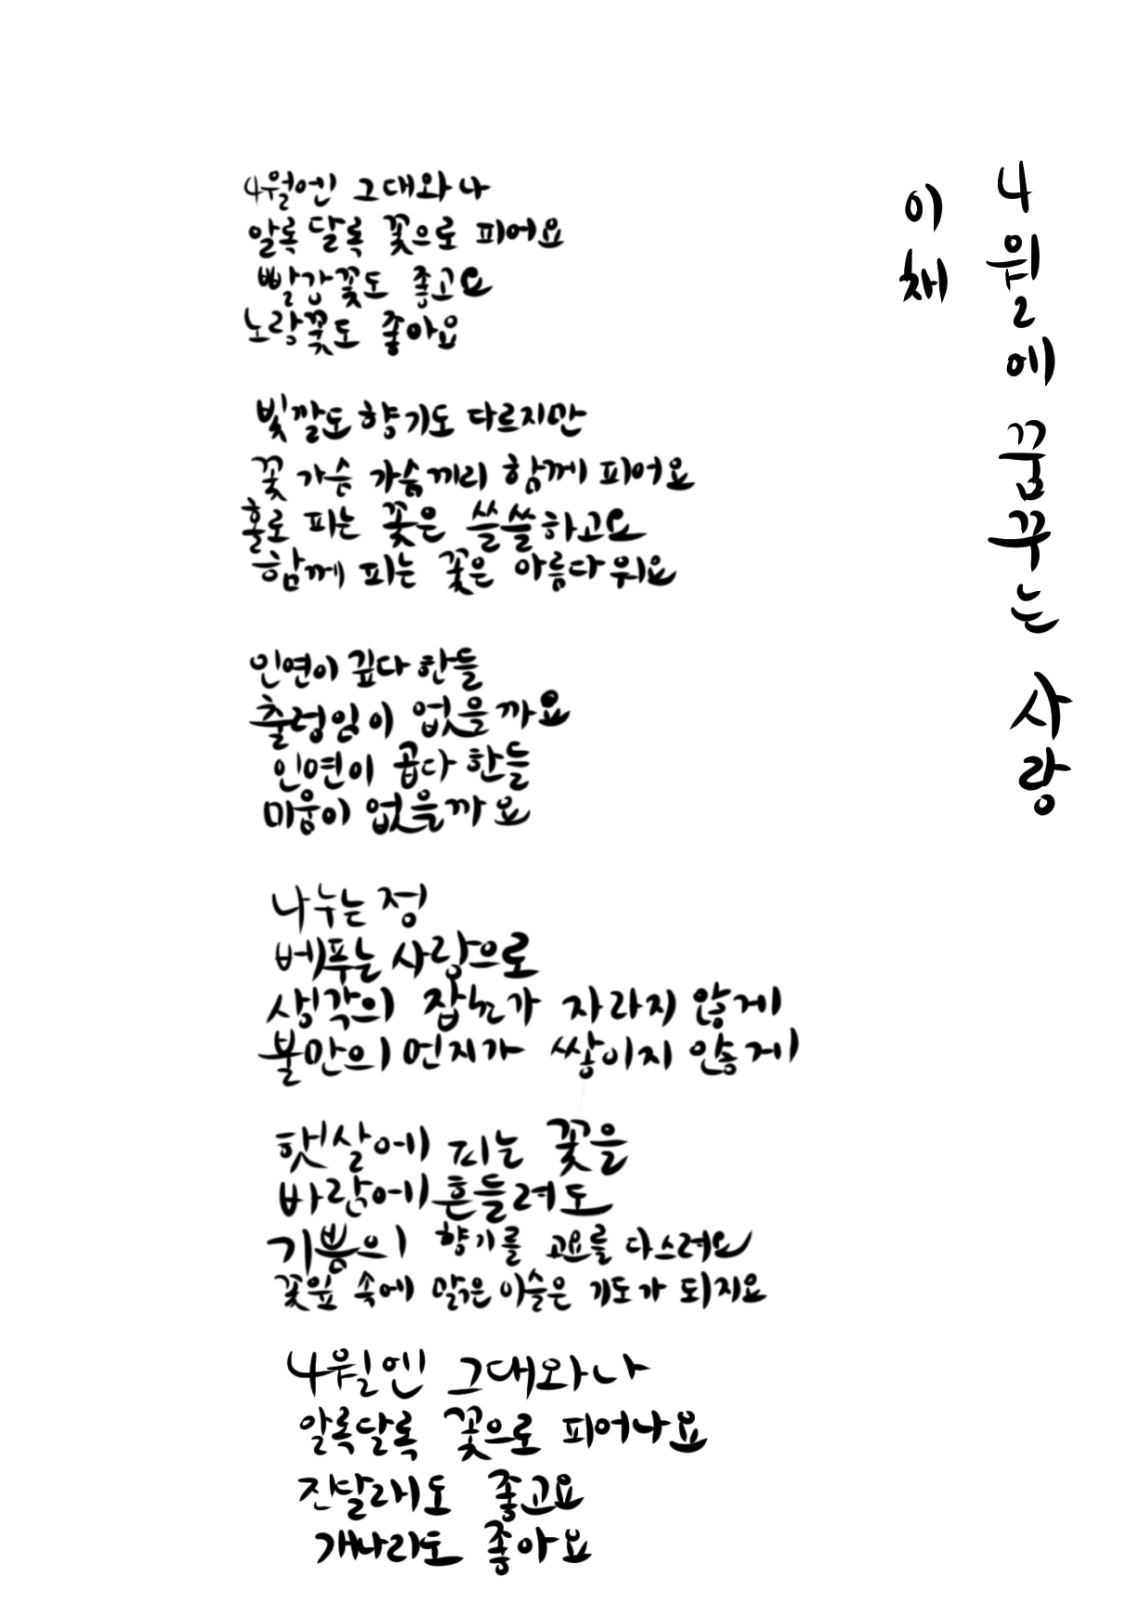 4월에 꿈꾸는 사랑
이채
4월엔 그대와 나
알록 달록 꽃으로 피어요
빨강꽃도 좋고요
노랑꽃도 좋아요
빛깔도 향기도 다르지만
꽃 가슴 가슴끼리 함께 피어요
홀로 피는 꽃은 쓸쓸하고요
함께 피는 꽃은 아름다워요
인연이 깊다 한들
출렁임이 없을까요
인연이 곱다 한들
미움이 없을까요
나누는 정
베푸는 사랑으로
생각의 잡초가 자라지 않게
불만의 먼지가 쌓이지 않게
햇살에 피는 꽃을
바람에 흔들려도
기쁨의 향기를 고요를 다스려요
꽃잎 속에 맑은 이슬은 기도가 되지요
4월엔 그대와 나
알록달록 꽃으로 피어나요
진달래도 좋고요
개나리도 좋아요